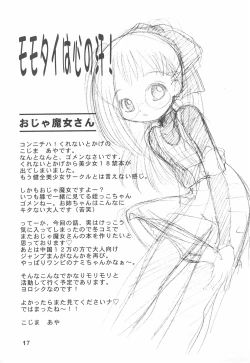 モモタイは心の汗！
おじゃ魔女さん
コンニチハ！くれないとかげの
こじま　あやです。
なんとなんと、ゴメンなさいです。
くれないとかげから美少女１８禁本が
出てしまいました。
もう健全美少女サークルとは言えない感じ。
しかもおじゃ魔女ですよー？
いつも隣で一緒に見てる姪っこちゃん
ゴメンねー。お姉ちゃんはこんなに
キタない大人です（苦笑）
ってーか、今回の話、実はけっこう
気に入ってしまったので冬コミで
またおじゃ魔女さんの本を作りたいと
思っております
あとは中国１２万の方で大人向け
ジャンプまんがなんかを再び。
やっぱりワンピのナミちゃんかなぁ〜。
そんなこんなでかなりモリモリと
活動して行く予定であります。
ヨロシクなのです！
よかったらまた見てくださいナ♡
ではまったね〜！！
こじま　あや
17